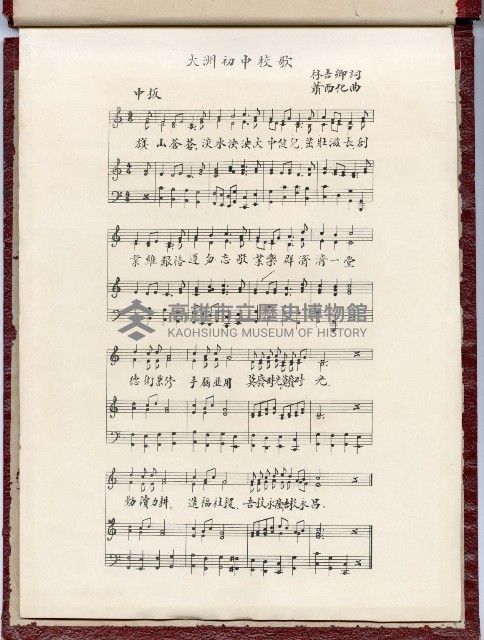 大洲初中校歌
林吾卿詞
蕭而化曲
中板
旗山蒼蒼淡水泱泱大中健兒茁壯滋長創
業維艱恪遵勿忘敬業樂群濟濟一堂
高雄市立歷史博物館
KAOHSIUNG MUSEUM OF HISTORY
德術兼修手腦並用莫廢時光莫廢時光
勤讀力耕造福社稷吾校永昌吾校永昌